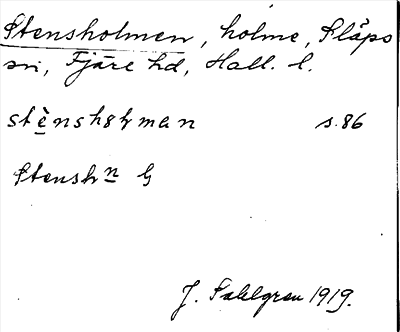 Stensholmen, holme, Släps
sn, Fjäre hd, Hall. l.
s. 86
Stenshn G
J. Sahlgren 1919.